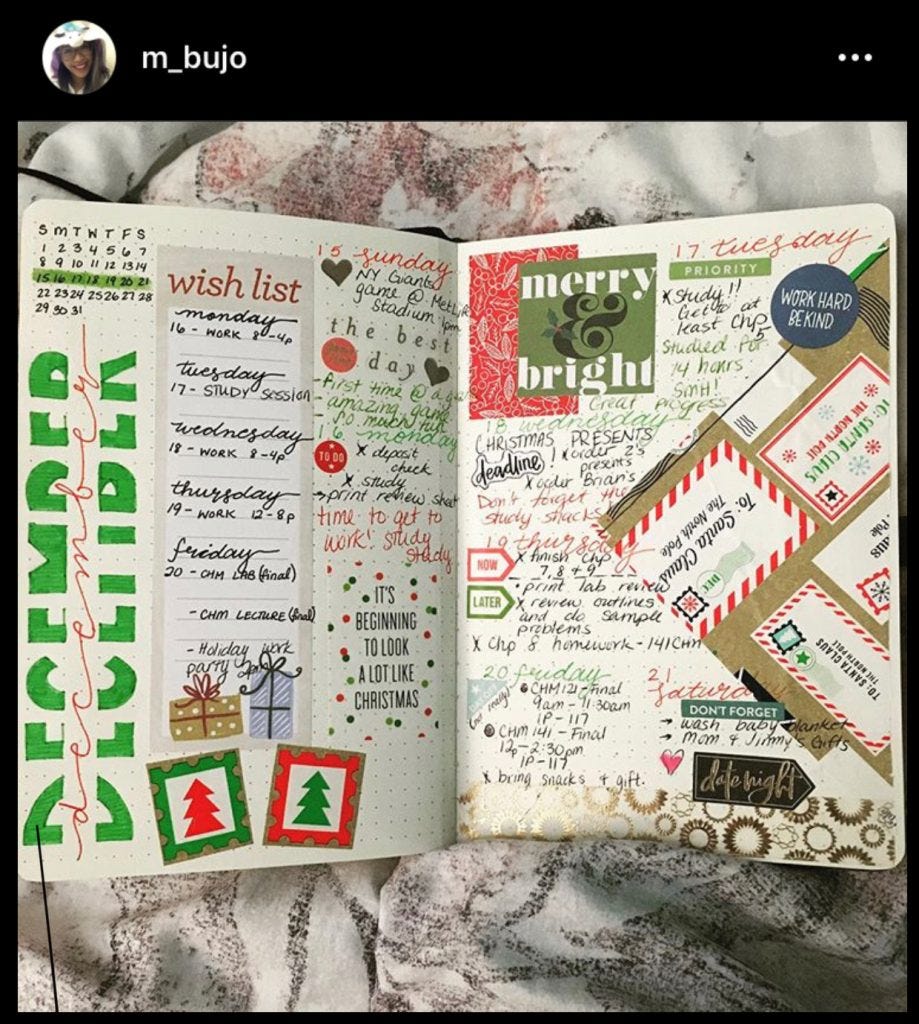 m_bujo
S M T W T F S
1 2 3 4 5 6 7
8 9 10 11 12 13 14
15 16 17 18 19 20 21
22 23 24 25 26 27 28
29 30 31
DECEMBER
december
wish list
monday
16 - WORK 8-4p
tuesday
17 - STUDY SESSION
wednesday
18 - WORK 8-4p
thursday
19 - WORK 12-8p
friday
20 - CHM LAB (final)
- CHM LECTURE (final)
- Holiday work
party 2pm
15 sunday
NY Giants
game @ MetLife
Stadium 1pm
the best
day
- First time @ a
- amazing game
- so much fun
16 monday
TO DO
x deposit
check
x study
→ print review
time to get to
work! study
study
IT'S
BEGINNING
TO LOOK
A LOT LIKE
CHRISTMAS
merry
&
bright
17 tuesday
PRIORITY
x Study!!
Get to at
least Chp
5
Studied for
14 hours
SMH!
Great progress
WORK HARD.
BE KIND
18 wednesday
CHRISTMAS PRESENTS
deadline!
! x order 2's
presents
x order Brian's
Don't forget the
study snacks!
19 thursday
NOW
x finish Chp
7, 8 + 9
• print Lab review
LATER
x review outlines
and do sample
problems
x Chp 8 homework - 141CHM
20 friday
(no really)
CHM 121 - Final
9am - 11:30am
IP-117
CHM 141 - Final
12p - 2:30pm
IP-117
x bring snacks & gift.
21
saturday
DON'T FORGET
→ wash baby blanket
→ Mom & Jimmy's Gifts
date night
TO: SANTA CLAUS
THE NORTH POLE
To: Santa Claus
The North Pole
DEC
Claus
Pole
TO: SANTA CLAUS
THE NORTH POLE